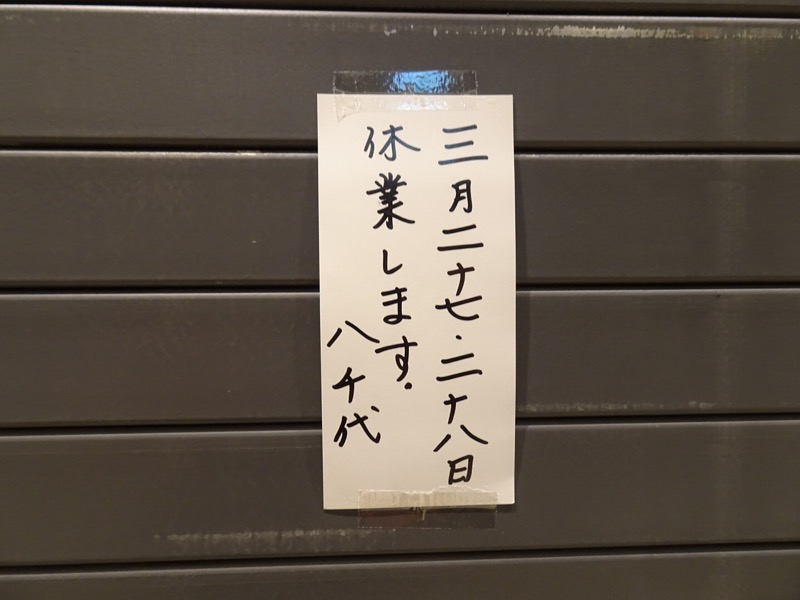 三月二十七・二十八日
休業します.
八千代